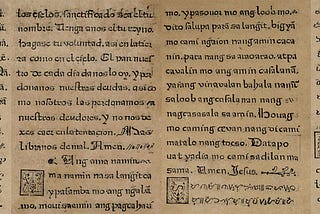 los cielos, sanctificado sea el tu
nombre. Venga anos el tu reyno.
hagase tu voluntad, asi en la tier
ra como en el cielo. El pan nues
tro de cada dia da nos lo oy, y per
danos nuestras deudas, asi co
mo nosotros las perdonamos a
nuestros deudores. Y no nos de
xes caer en la tentacion. Mas
libranos de mal. Amen.
Ang ama namin
ma namin nasa langit ca
ypasamba mo ang ngala
mo, mouisa amin ang pagcahari
mo, ypasonor mo ang loob mo,
dito sa lupa para sa langit, bigya
mo cami ngaion nang amin caca
nin, para nang sa araoarao, at pa
caualin mo ang amin casalana,
yayang vinaualan bahala namin
sa loob ang casalanan nang
nagcasasala sa amin. Houag
mo caming ceuan nang di cami
matalo nang tocso. Datapo
uat yadia mo cami sa dilan ma
sama. Amen. Jesus.